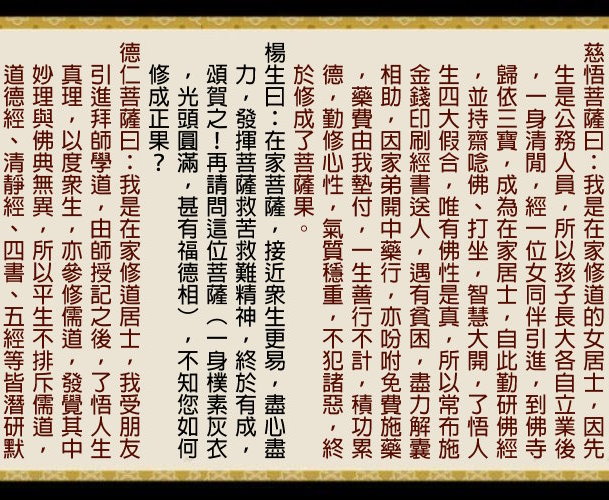 慈悟菩薩曰：我是在家修道的女居士，因先
生是公務人員，所以孩子長大各自立業後
，一身清閒，經一位女同伴引進，到佛寺
歸依三寶，成為在家居士，自此勤研佛經
，並持齋唸佛、打坐，智慧大開，了悟人
生四大假合，唯有佛性是真，所以常布施
金錢印刷經書送人，遇有貧困，盡力解囊
相助，因家弟開中藥行，亦吩咐免費施藥
，藥費由我墊付，一生善行不計，積功累
德，勤修心性，氣質穩重，不犯諸惡，終
於修成了菩薩果。
楊生曰：在家菩薩，接近衆生更易，盡心盡
力，發揮菩薩救苦救難精神，終於有成，
頌賀之！再請問這位菩薩（一身樸素灰衣
，光頭圓滿，甚有福德相），不知您如何
修成正果？
德仁菩薩曰：我是在家修道居士，我受朋友
引進拜師學道，由師授記之後，了悟人生
真理，以度衆生，亦參修儒道，發覺其中
妙理與佛典無異，所以平生不排斥儒道，
道德經、清靜經、四書、五經等皆潛研默